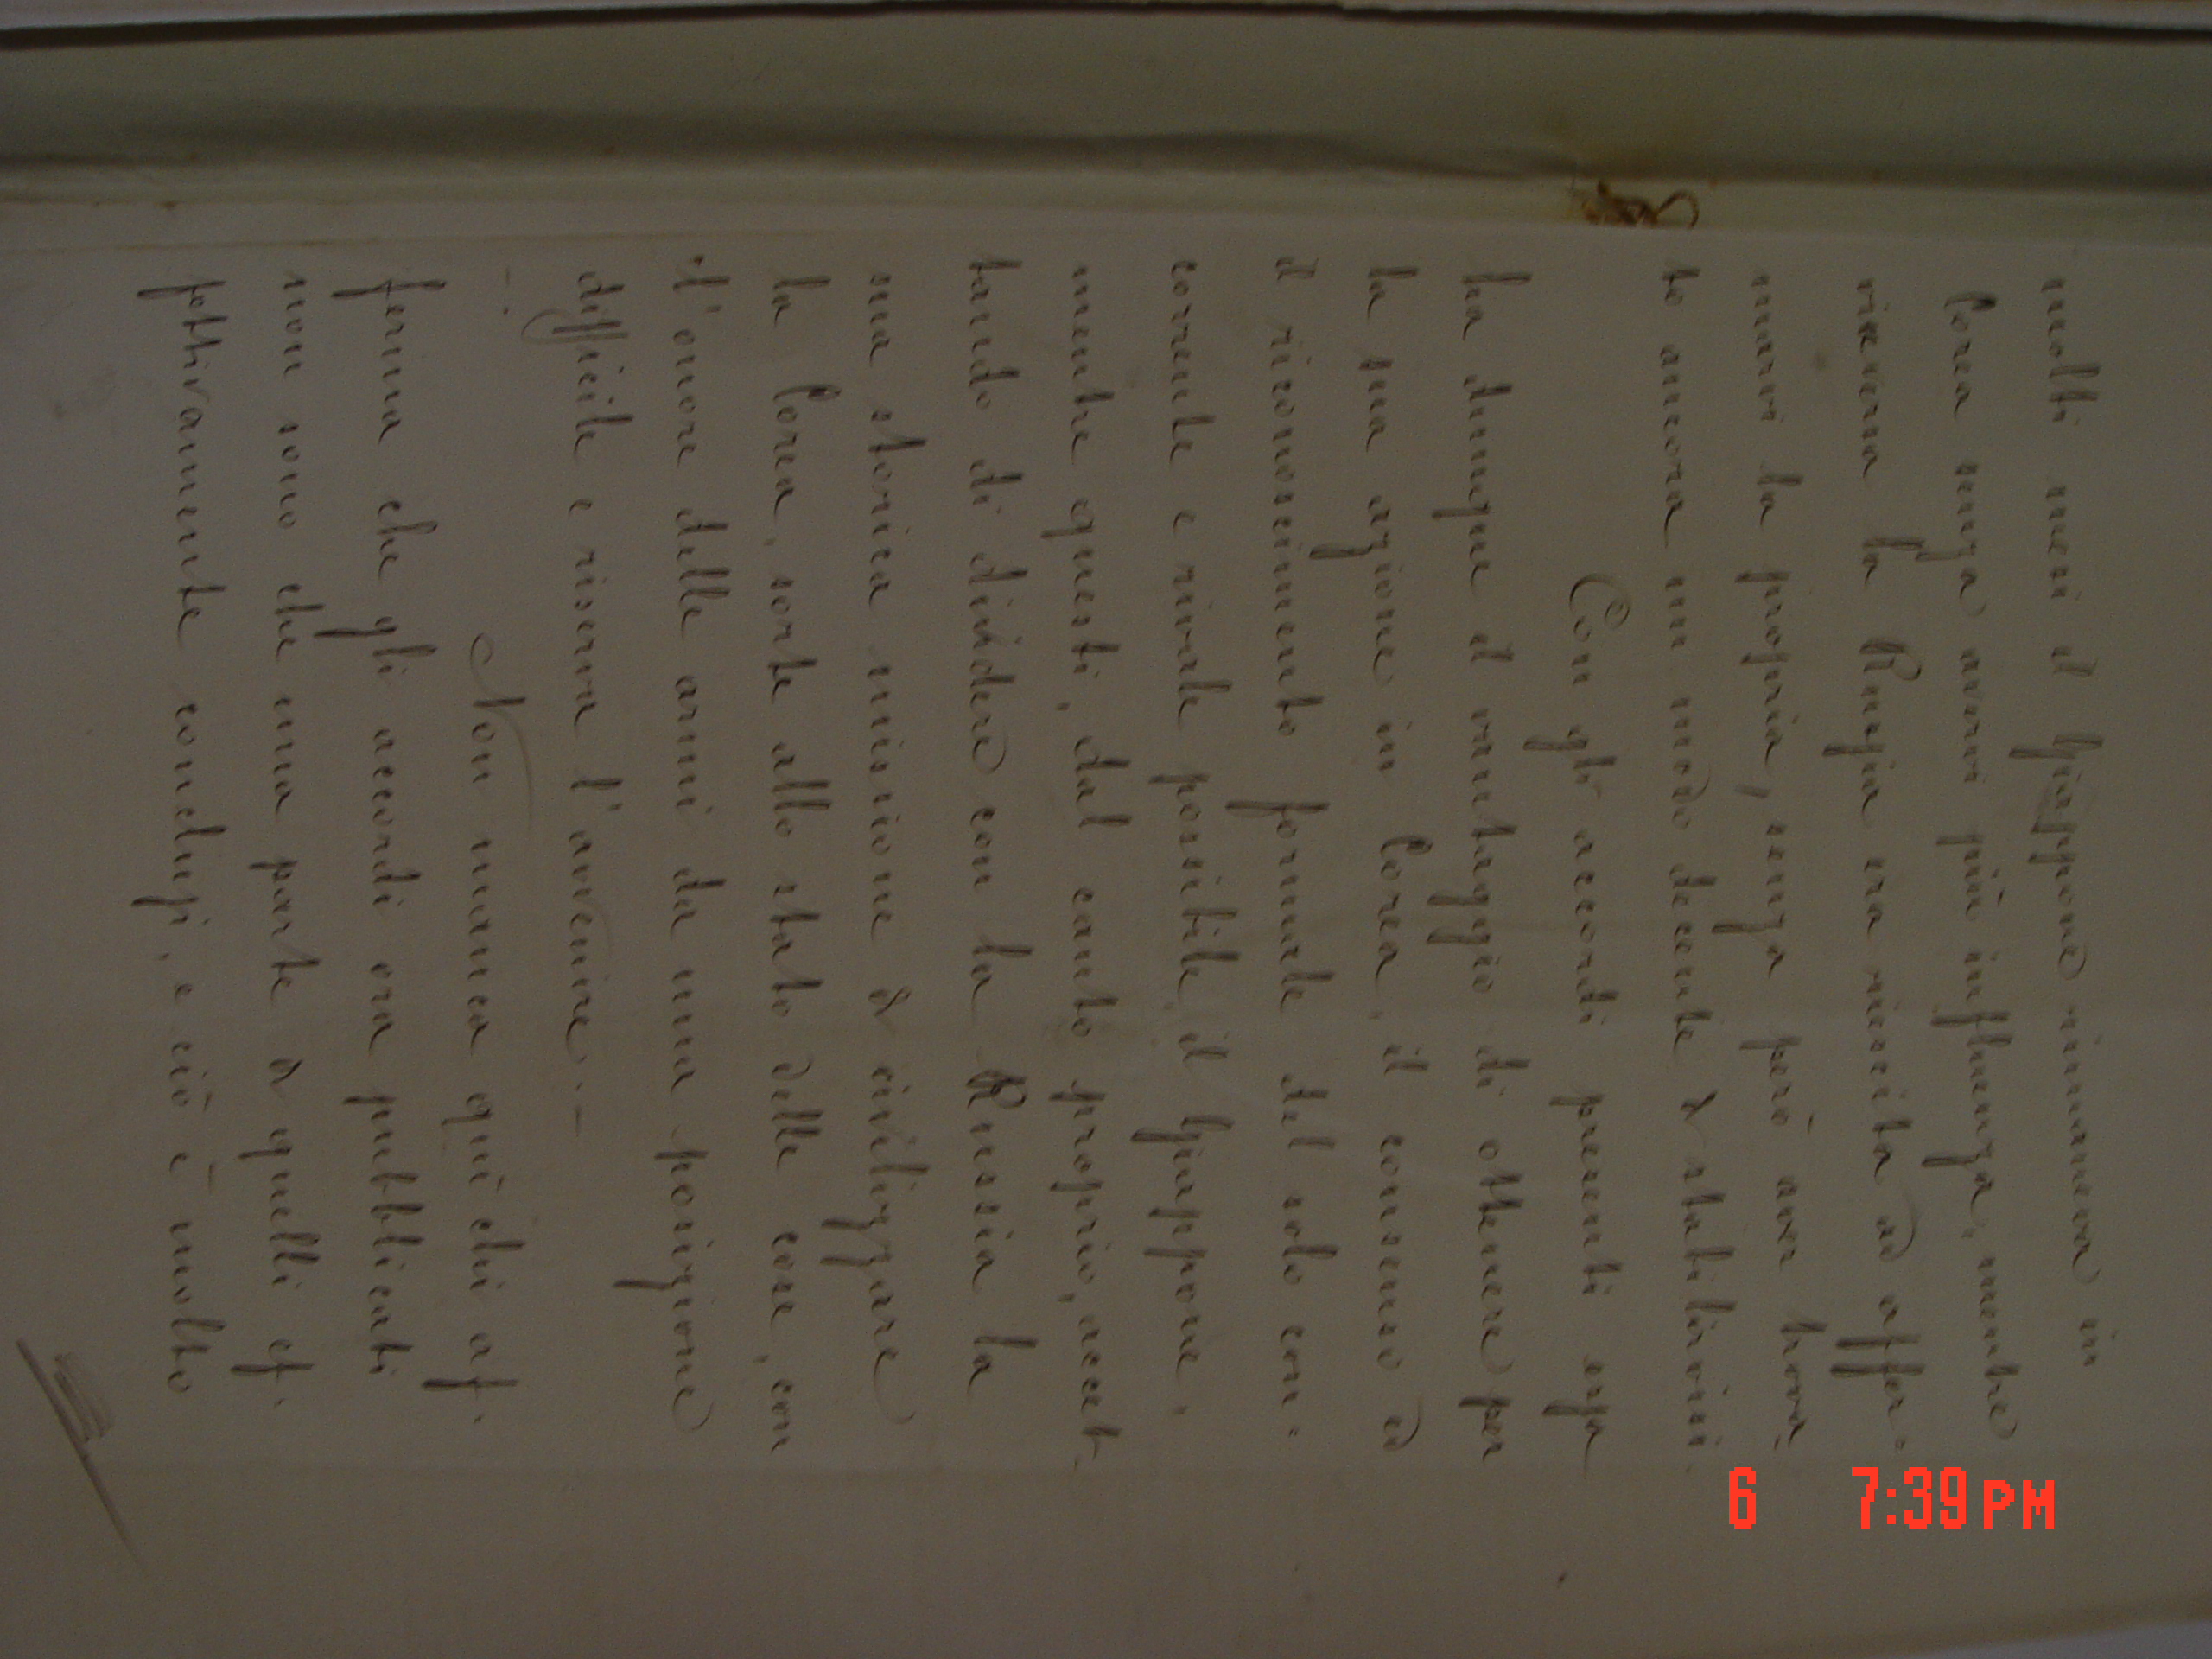 molti mesi il Giappone rimaneva in
Corea senza avervi più influenza, mentre
viceversa la Russia era riescita ad affer=
marvi la propria, senza però aver trova-
to ancora un modo decente di stabilirvisi.
Con gli accordi presenti essa
ha dunque il vantaggio di ottenere per
la sua azione in Corea, il consenso ed
il riconoscimento formale del solo con-
corrente e rivale possibile, il Giappone,
mentre questi, dal canto proprio, accet-
tando di dividere con la Russia la
sua storica missione di civilizzare
la Corea, sorte allo stato delle cose, con
l'onore delle armi da una posizione
difficile e riserva l'avvenire. —
Non manca quì chi af-
ferma che gli accordi ora pubblicati
non sono che una parte di quelli ef-
fettivamente conclusi, e ciò è molto
6 7:39 PM